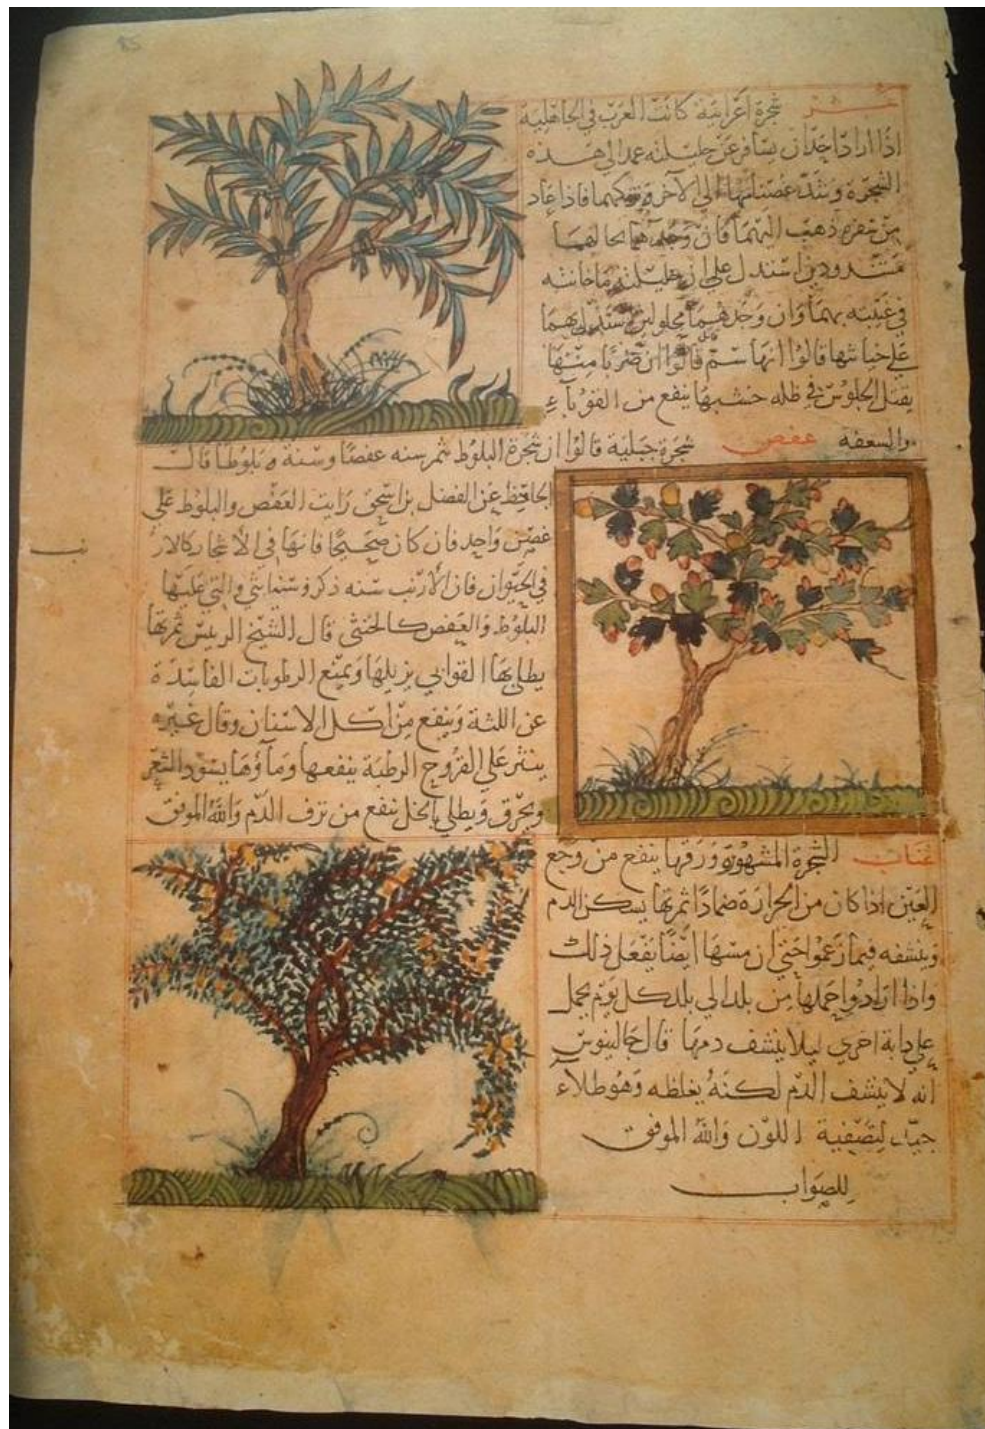 عشر شجرة اعرابية كانت العرب في الجاهلية
اذا اراد احد ان يسافر عن حليلته عمد الي هذه
الشجرة وشد غصنا منها الي الآخر وتركهما فاذا عاد
من سفره ذهب اليهما فان وجدهما بحالهما
مشدودين استدل علي ان حليلته ما خانته
في غيبته بهما وان وجدهما محلولين استدل بهما
علي خيانتها قالوا انها سم قالوا ان ضربا منها
يقتل الجلوس في ظله خشبها ينفع من القوباء
والسعفه عفص شجرة جبلية قالوا ان شجرة البلوط تثمر سنه عفصا وسنة بلوطا قال
الجاحظ عن الفضل بن اسحق رايت العفص والبلوط علي
غصن واحد فان كان صحيحا فانها في الاشجار كالارنب
في الحيوان فان الارنب سنه ذكر وسنة انثي والتي عليها
البلوط والعفص كالخنثي قال الشيخ الرييس ثمرتها
يطلي بها القوابي يزيلها ويمنع الرطوبات الفاسدة
عن اللثة وينفع من اكل الاسنان وقال غيره
ينثر علي القروح الرطبة ينفعها وماؤها يسود الشعر
ويحرق ويطلي بالخل ينفع من نزف الدم والله الموفق
عناب الشجرة المشهورة ورقها ينفع من وجع
العين اذا كان من الحرارة ضمادا ثمرتها يسكن الدم
وينشفه فيما زعموا حتي ان مسها ايضا يفعل ذلك
واذا ارادوا حملها من بلد الي بلد كل يوم يحمل
علي دابة اخري ليلا ينشف دمها قال جالينوس
انه لا ينشف الدم لكنه يغلظه وهو طلاء
جيد لتصفية اللون والله الموفق
للصواب